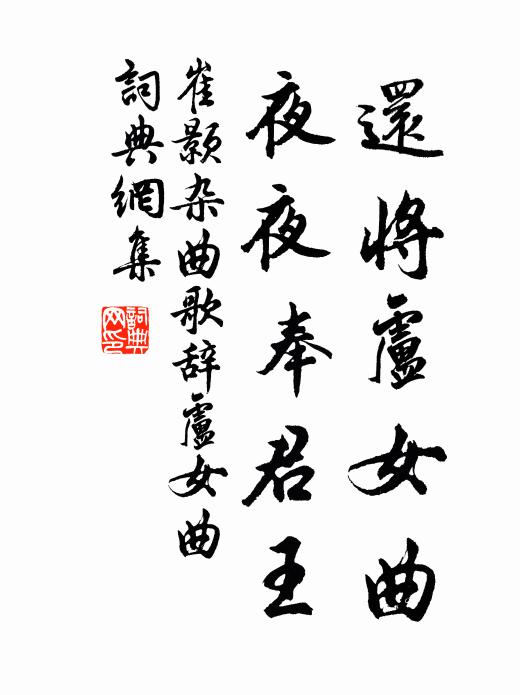 還將盧女曲
夜夜奉君王
崔颢杂曲歌辞盧女曲
詞典網集
詞典
网印